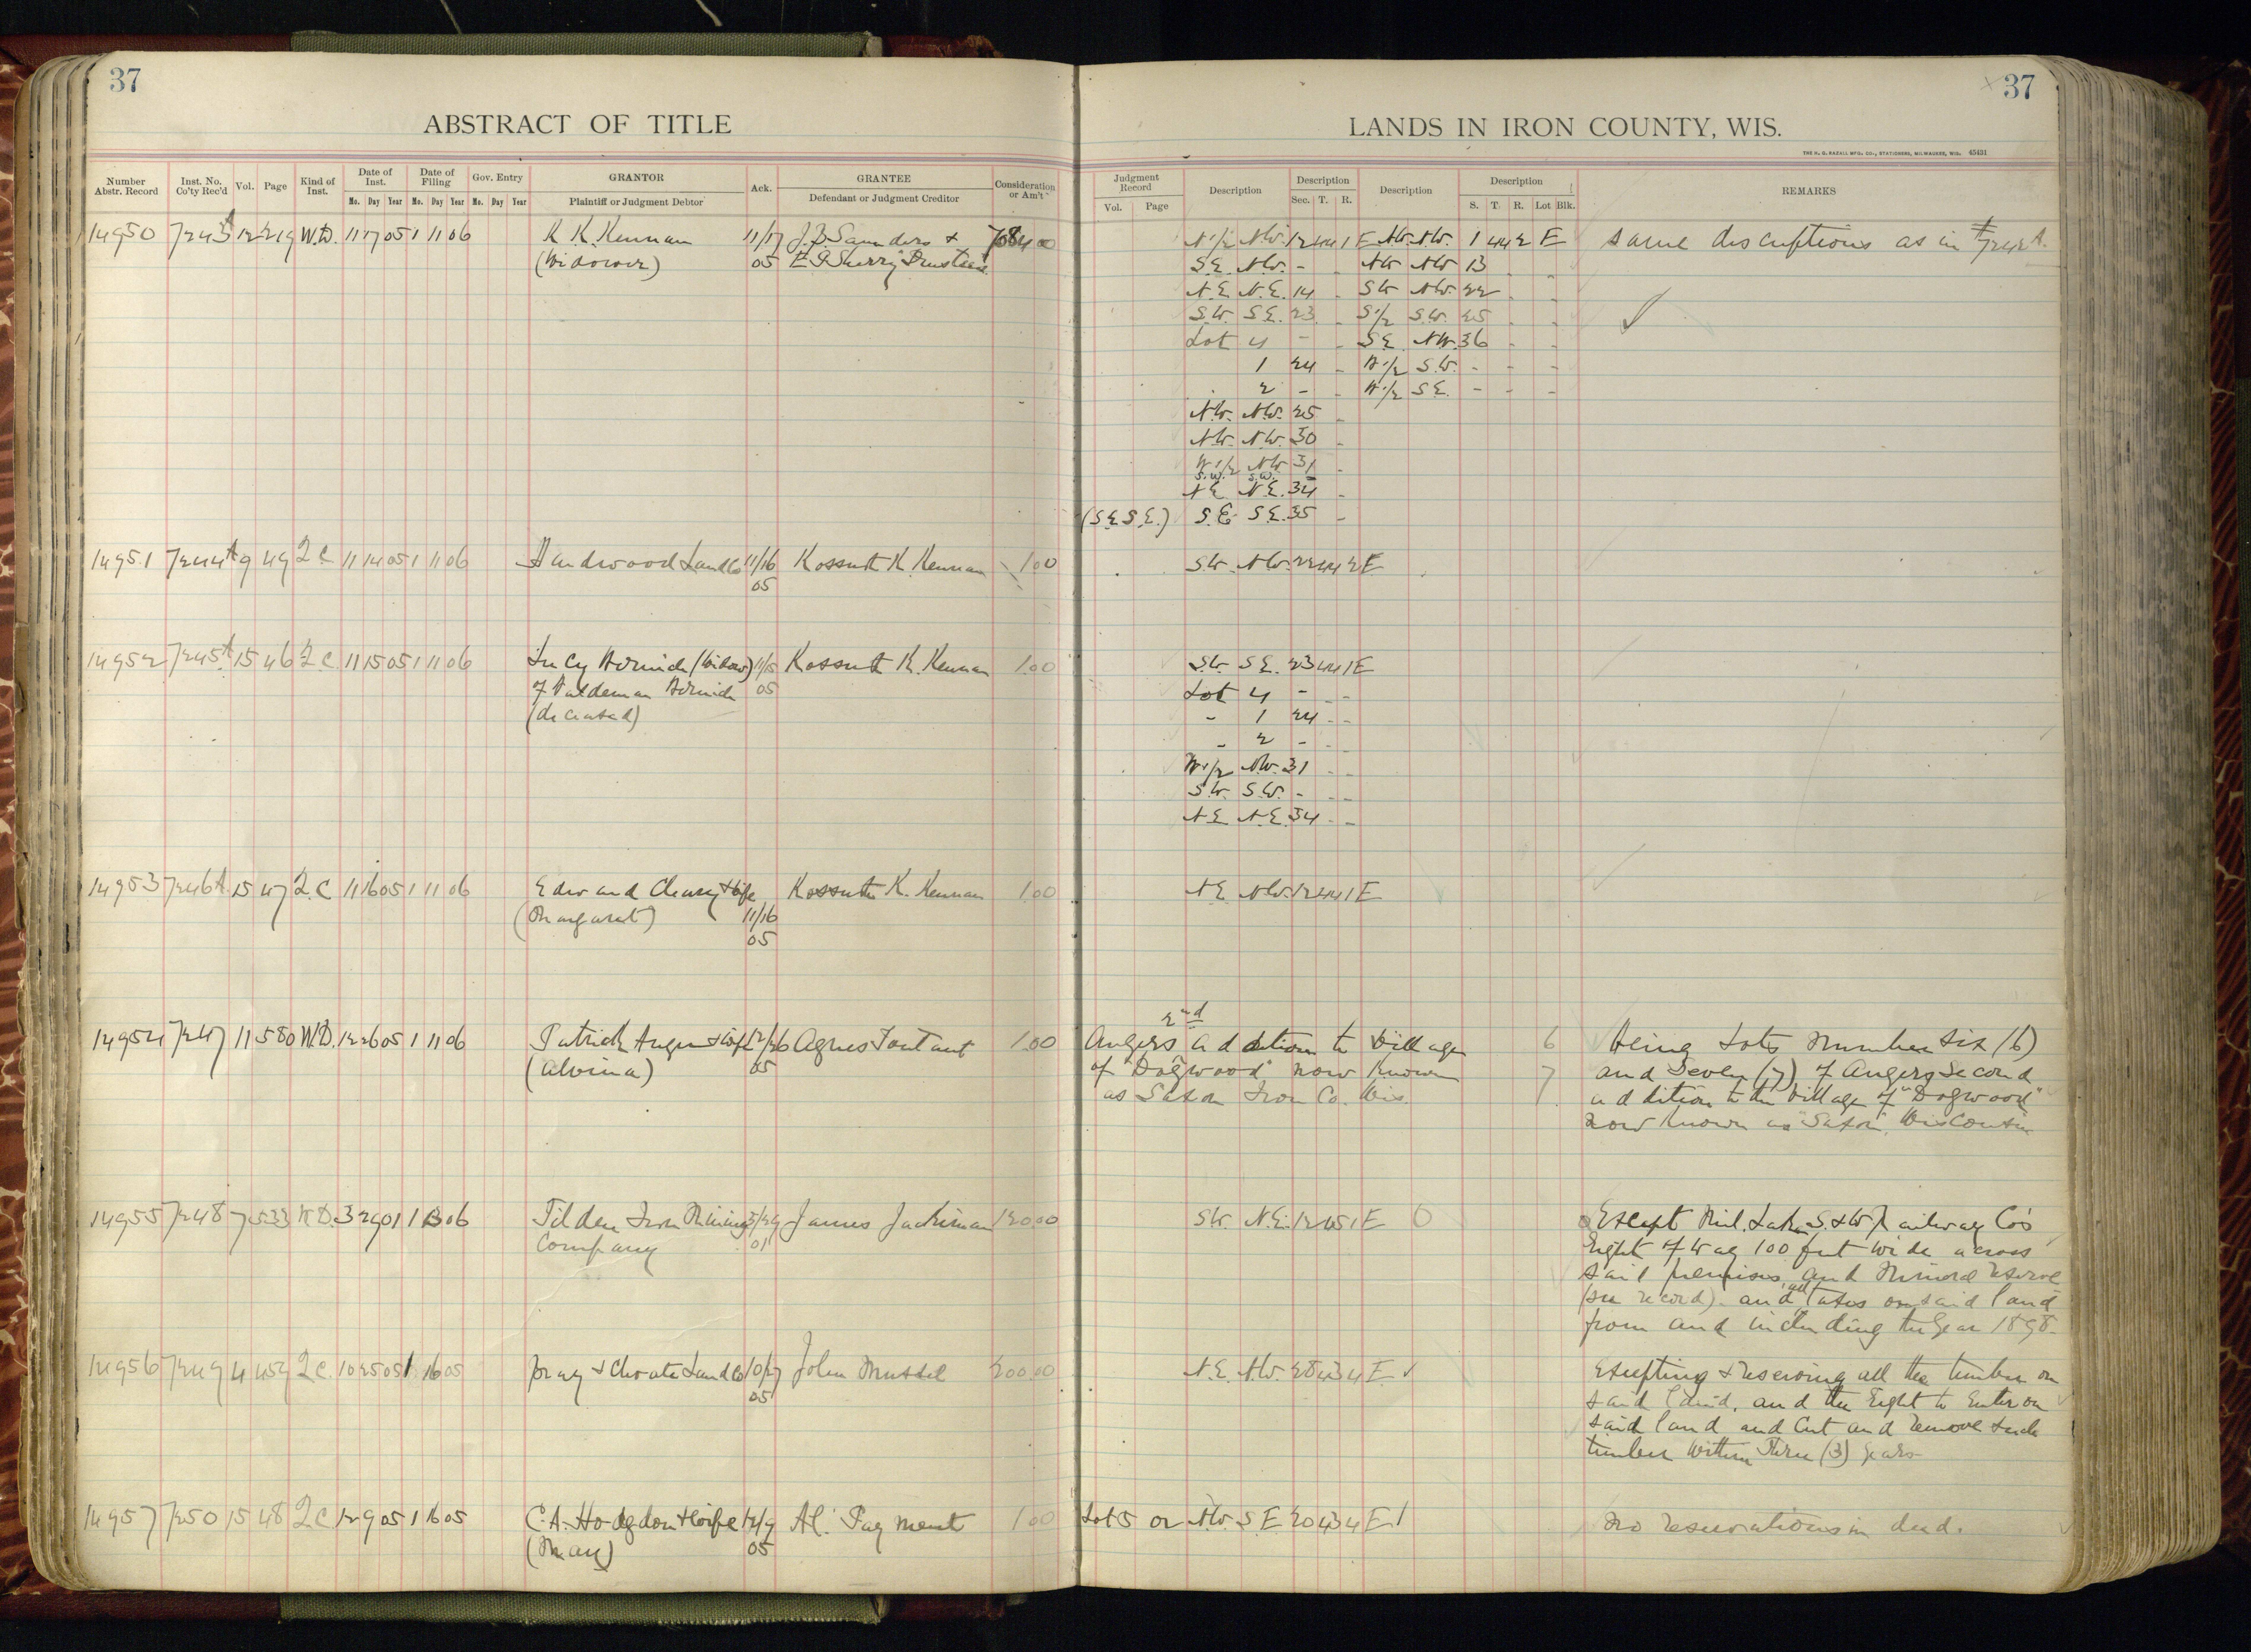 37
ABSTRACT OF TITLE
Number Abstr. Record Inst. No. Co'ty Rec'd Vol. Page Kind of Inst. Date of Inst. Mo. Day Year Date of Filing Mo. Day Year Gov. Entry Mo. Day Year GRANTOR Plaintiff or Judgment Debtor Ack. GRANTEE Defendant or Judgment Creditor Consideration or Am't
14950 7243A 12 219 W.D. 11 17 05 1 11 06 K. K. Kennan 11/17 J. B. Saunders +
(Widower) 05 Trustees
14951 7244A 9 49 Q.C. 11 14 05 1 11 06 Hardwood Land Co 11/16 Kossuth K. Kennan 1.00
05
14952 7245A 15 46 Q.C. 11 15 05 1 11 06 Lucy (Widow) 11/15 Kossuth K. Kennan 1.00
of 05
(deceased)
14953 7246A 15 47 Q.C. 11 16 05 1 11 06 Edward Cleary + Wife Kossuth K. Kennan 1.00
(Margaret) 11/16
05
14954 7247 11 580 W.D. 12 26 05 1 11 06 Patrick Anger + Wife 12/26 Agnes Toutant 1.00
(Alvina) 05
14955 7248 7 533 W.D. 3 29 01 1 13 06 Tilden Iron Mining 3/29 James 120.00
Company 01
14956 7249 4 459 Q.C. 10 25 05 1 16 05 Pray + Choate Land Co 10/27 John 200.00
05
14957 7250 15 48 Q.C. 12 9 05 1 16 05 C. A. Hodgdon + Wife 12/9 Al. Payment 1.00
(May) 05
37
LANDS IN IRON COUNTY, WIS.
THE H. G. RAZALL MFG. CO., STATIONERS, MILWAUKEE, WIS. 45431
Judgment Record Vol. Page Description Description Sec. T. R. Description Description S. T. R. Lot Blk. REMARKS
N 1/2 N.W. 12 44 1 E N.W. N.W. 1 44 2 E same descriptions as in #7242A.
S.E. N.W. - N.W. N.W. 13
N.E. N.E. 14 - S.W. N.W. 22
S.W. S.E. 23 - S 1/2 S.W. 25
Lot 4 - - S.E. N.W. 36
1 24 - N 1/2 S.W. - - -
2 - - W 1/2 S.E. - - -
N.W. N.W. 25 -
N.W. N.W. 30 -
W 1/2 N.W. 31 -
S.W. S.W. -
N.E. N.E. 34 -
(S.E. S.E.) S.E. S.E. 35 -
S.W. N.W. 22 44 2 E
S.W. S.E. 23 44 1 E
Lot 4 - - -
- 1 24 - -
- 2 - - -
W 1/2 N.W. 31 - -
S.W. S.W. - - -
N.E. N.E. 34 - -
N.E. N.W. 12 44 1 E
2nd
Angers addition to Village 6 being Lots Number Six (6)
of "Dogwood" now known 7 and Seven (7) of Angers Second
as Saxon Iron Co. Wis. addition to the Village of "Dogwood"
now known as "Saxon", Wisconsin
S.W. N.E. 12 45 1 E Except Mil. Lake S. + W. Railway Co's
Right of way 100 feet wide across
said premises, and Mineral reserve
(see record). and all taxes on said land
from and including the year 1898.
N.E. N.W. 28 43 4 E Excepting + reserving all the timber on
said land, and the right to Enter on
said land and Cut and remove such
timber Within Three (3) years
Lot 5 or N.W. S.E. 20 43 4 E No reservations in deed.